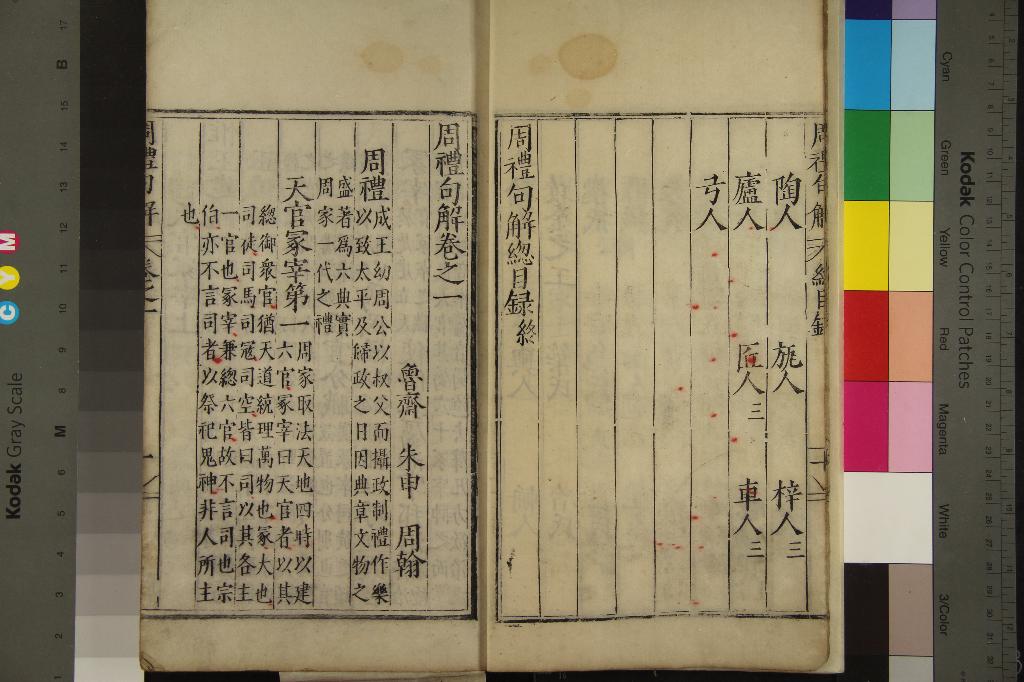 陶人 瓬人 梓人三
廬人 匠人三 車人三
弓人
周禮句解總目録終
周禮句解卷之一
魯齋 朱申 周翰
周禮 成王幼周公以叔父而攝政制禮作樂
以致太平及歸政之日因典章文物之
盛著爲六典實
周家一代之禮
天官冢宰第一 周家取法天地四時以建
六官冢宰曰天官者以其
總御衆官猶天道統理萬物也冢大也
司徒司馬司冦司空皆曰司以其各主
一官也冢宰兼總六官故不言司也宗
伯亦不言司者以祭祀鬼神非人所主
也
Kodak Gray Scale
C Y M
Kodak Color Control Patches
Cyan
Green
Yellow
Red
Magenta
White
3/Color